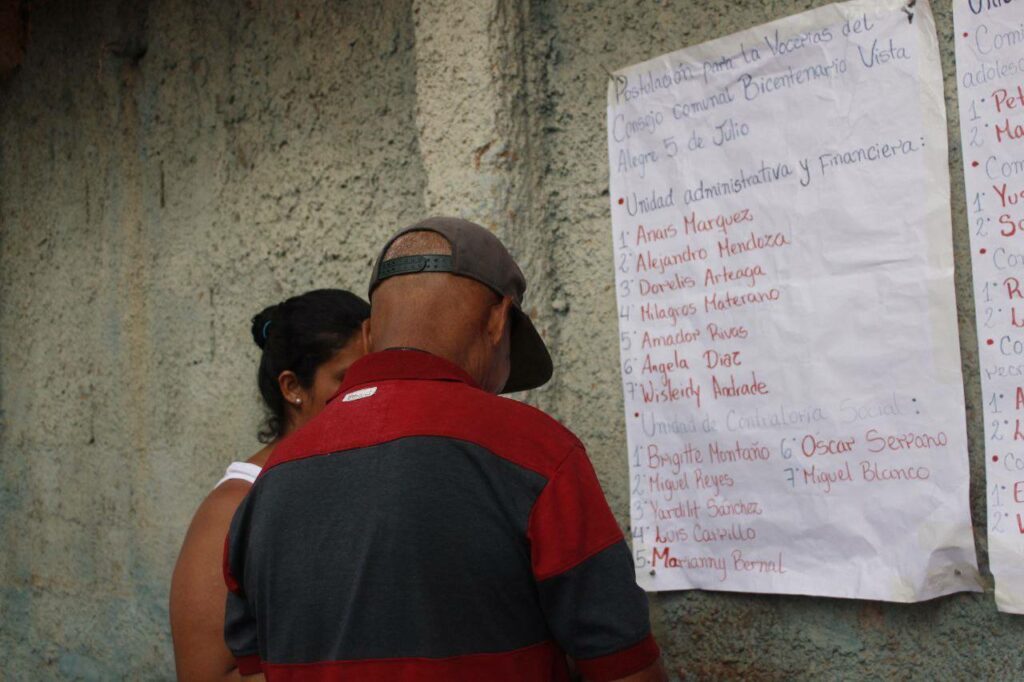 Postulación para la Vocerias del
Consejo comunal Bicentenario Vista
Alegre 5 de Julio
• Unidad administrativa y Financiera:
1° Anais Marquez
2° Alejandro Mendoza
3° Dorelis Arteaga
4° Milagros Materano
5° Amador Rivas
6° Angela Diaz
7° Wisleidy Andrade
• Unidad de Contraloria Social:
1° Brigitte Montaño 6° Oscar Serrano
2° Miguel Reyes 7° Miguel Blanco
3° Yardilit Sánchez
4° Luis Carrillo
5. Marianny Bernal
• Comi
adoles
1° Pet
2° Ma
• Com
1° Yus
2° So
• Co
1° R
2° L
• Co
recr
1° A
2° L
• Co
1° E
2°